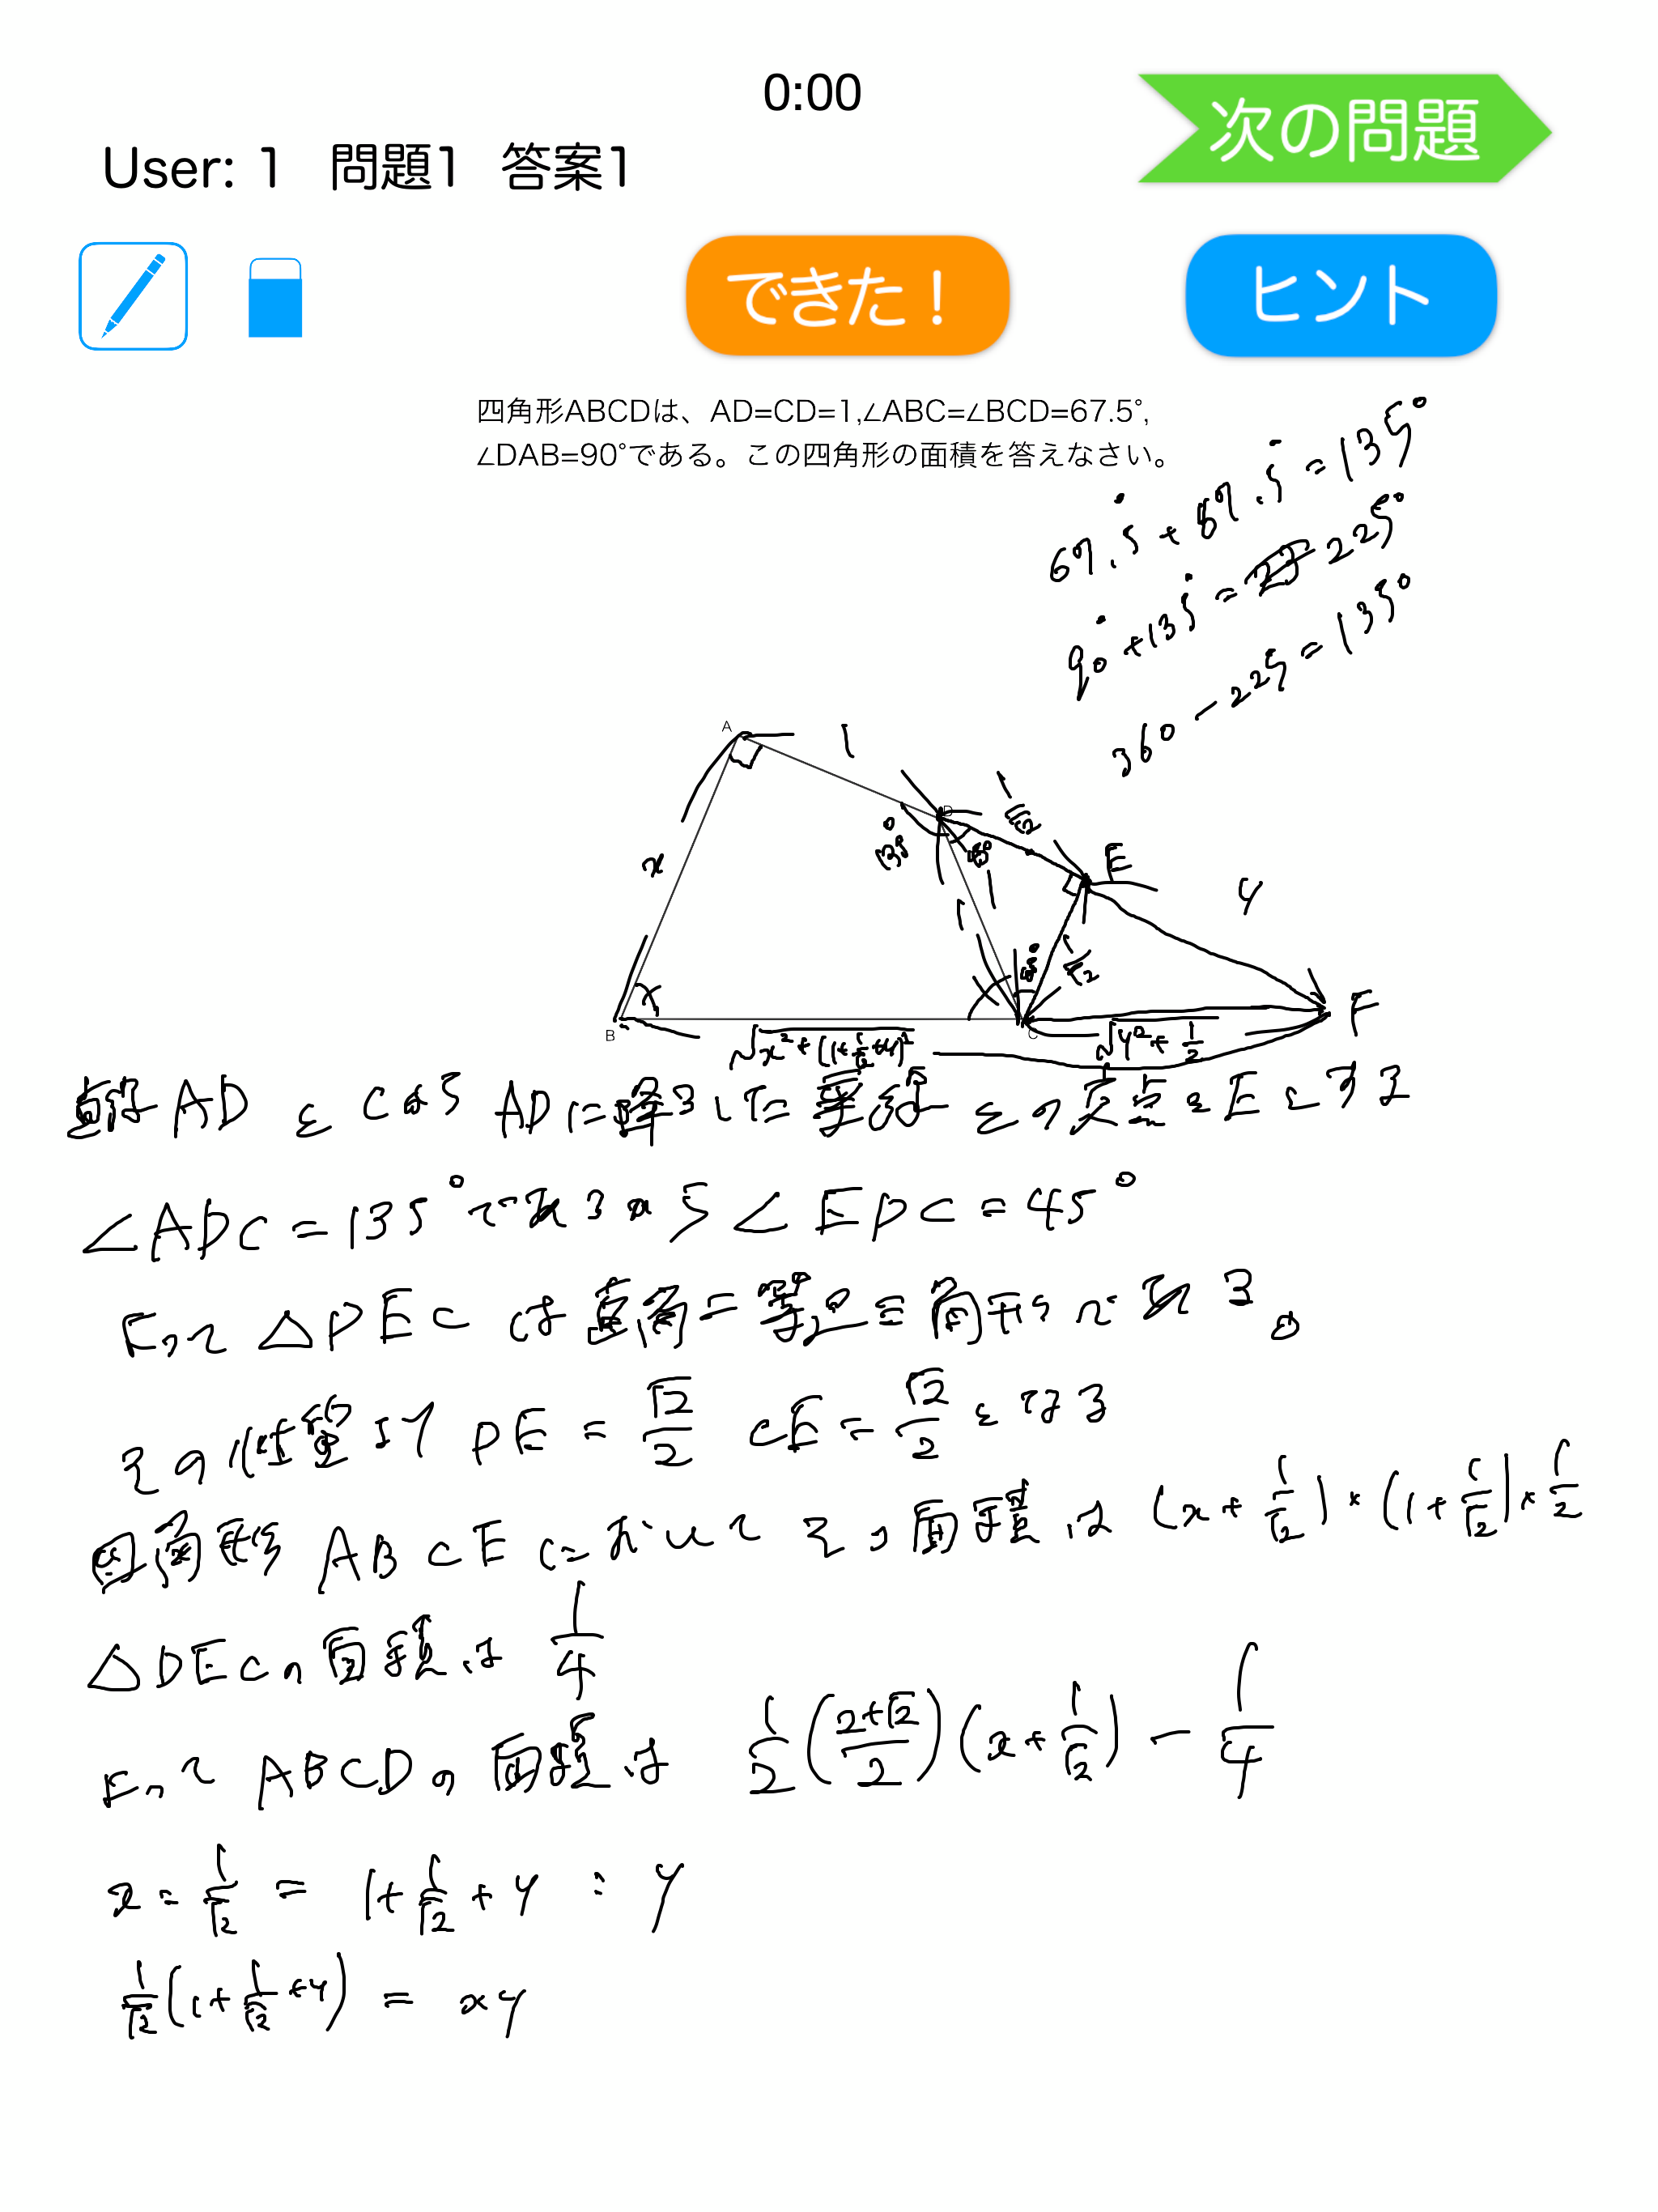 0:00
次の問題
User: 1 問題1 答案1
できた！
ヒント
四角形ABCDは、AD=CD=1,∠ABC=∠BCD=67.5°,
∠DAB=90°である。この四角形の面積を答えなさい。
67.5° + 67.5° = 135°
90° + 135° = 225°
360 - 225 = 135°
A
1
D
1/√2
135°
45°
E
x
1
y
45°
1/√2
B
x
C
F
√x²+(1+1/√2+y)²
√y²+1/2
直線AD と CからADに降ろした垂線との交点をEとする
∠ADC=135°であるから∠EDC=45°
よって △DECは直角二等辺三角形である。
その性質より DE=√2/2 CE=√2/2となる
四角形ABCEにおいてその面積は (x+1/√2)×(1+1/√2)×1/2
△DECの面積は 1/4
よって ABCDの面積は 1/2((2+√2)/2)(x+1/√2) - 1/4
x = 1/√2 = 1+1/√2+y : y
1/√2(1+1/√2+y) = xy